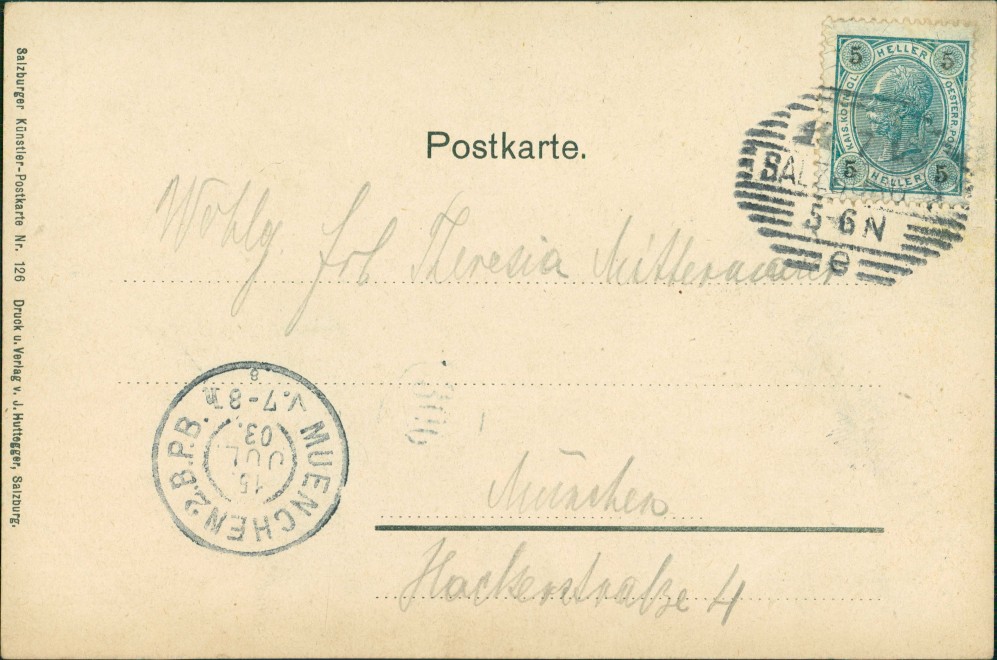 Postkarte.
5 HELLER 5
KAIS. KOENIGL. OESTERR. POST
5 HELLER 5
5-6 N
e
Wohlg Frl Theresia
MUENCHEN 2.B.P.B.
15.
JUL.
03.
V.7-8
8
München
Hackerstraße 4
Salzburger Künstler-Postkarte Nr. 126 Druck u. Verlag v. J. Huttegger, Salzburg.